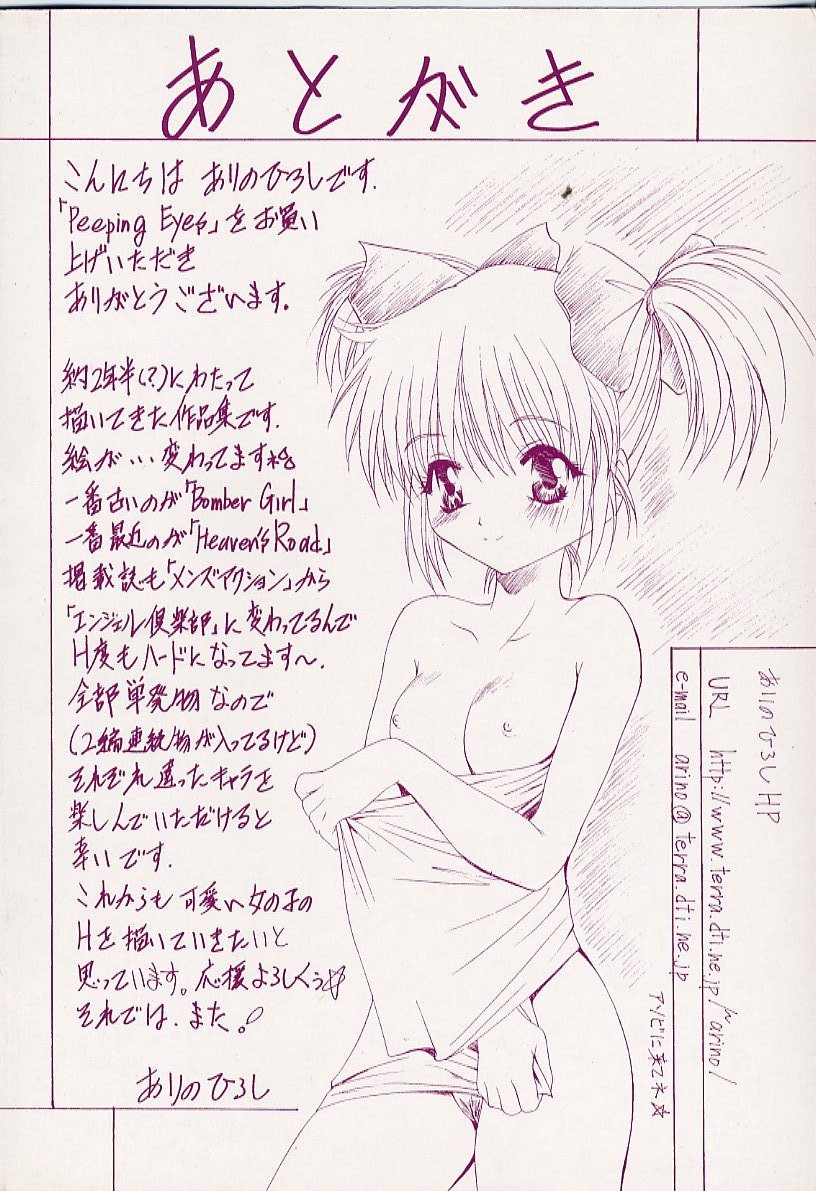 あとがき
こんにちは ありのひろしです.
「Peeping Eyes」をお買い
上げいただき
ありがとうございます.
約2年半(?)にわたって
描いてきた作品集です.
絵が…変わってますね
一番古いのが「Bomber Girl」
一番最近のが「Heaven's Road」
掲載誌も「メンズアクション」から
「エンジェル倶楽部」に変わってるんで
H度もハードになってます〜.
全部単発物なので
(2編連続物が入ってるけど)
それぞれ違ったキャラを
楽しんでいただけると
幸いです.
これからも可愛い女の子の
Hを描いていきたいと
思っています。応援よろしくぅ
それでは.また。
ありのひろし
ありのひろしHP
URL http://www.terra.dti.ne.jp/~arino/
e-mail arino@terra.dti.ne.jp
アソビに来てネ☆